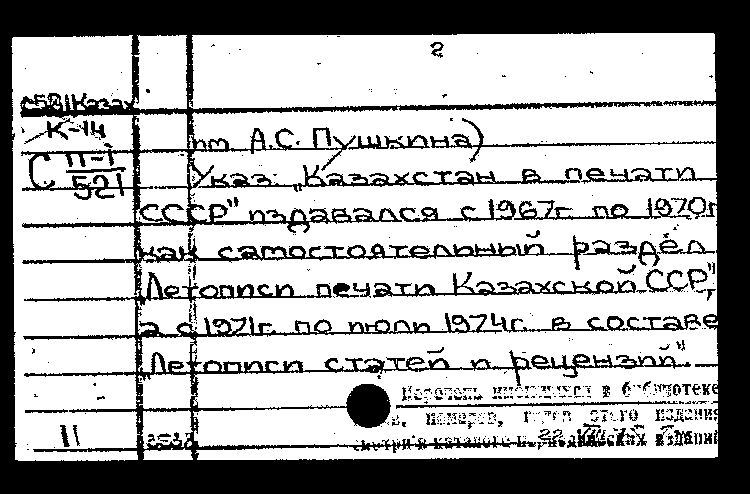 2
с581Казах
К-14
С П-1
521
им. А.С. Пушкина)
Указ. „Казахстан в печати
СССР" издавался с 1967г. по 1970г
как самостоятельный раздел
„Летописи печати Казахской ССР",
а с 1971г. по июли 1974г. в составе
„Летописи статей и рецензий".
Перечень имеющихся в библиотеке
номеров, годов этого издания
смотри в каталоге периодических изданий
11